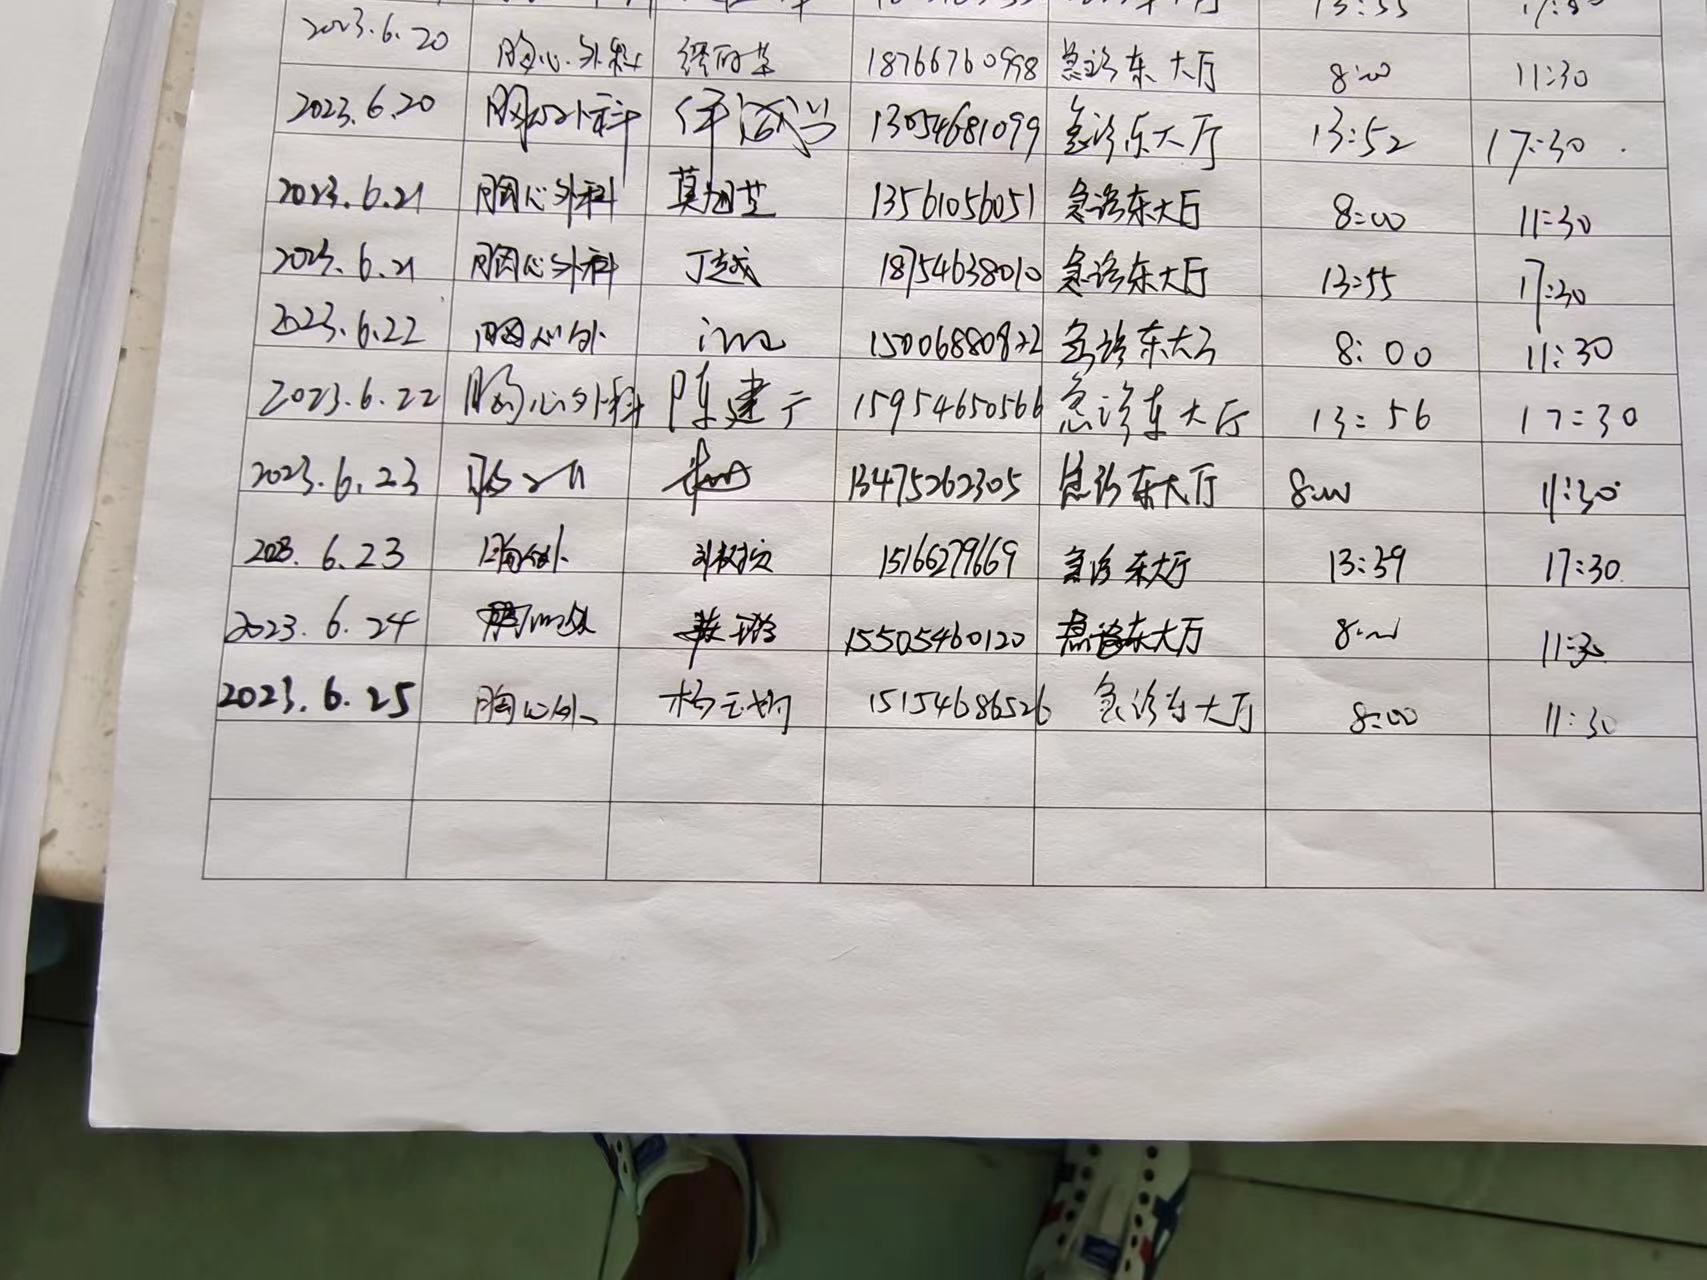 13:55
2023.6.20 胸心外科 18766760998 急诊东大厅 8:00 11:30
2023.6.20 胸心外科 13054681099 急诊东大厅 13:52 17:30
2023.6.21 胸心外科 13561056051 急诊东大厅 8:00 11:30
2023.6.21 胸心外科 丁越 18754638010 急诊东大厅 13:55 17:30
2023.6.22 胸心外 15006880822 急诊东大厅 8:00 11:30
2023.6.22 胸心外科 陈建 15954650566 急诊东大厅 13:56 17:30
2023.6.23 13475262305 急诊东大厅 8:00 11:30
2023.6.23 胸外 15166279669 急诊东大厅 13:39 17:30
2023.6.24 胸心外 15505460120 急诊东大厅 8:00 11:30
2023.6.25 胸心外 15154686526 急诊东大厅 8:00 11:30